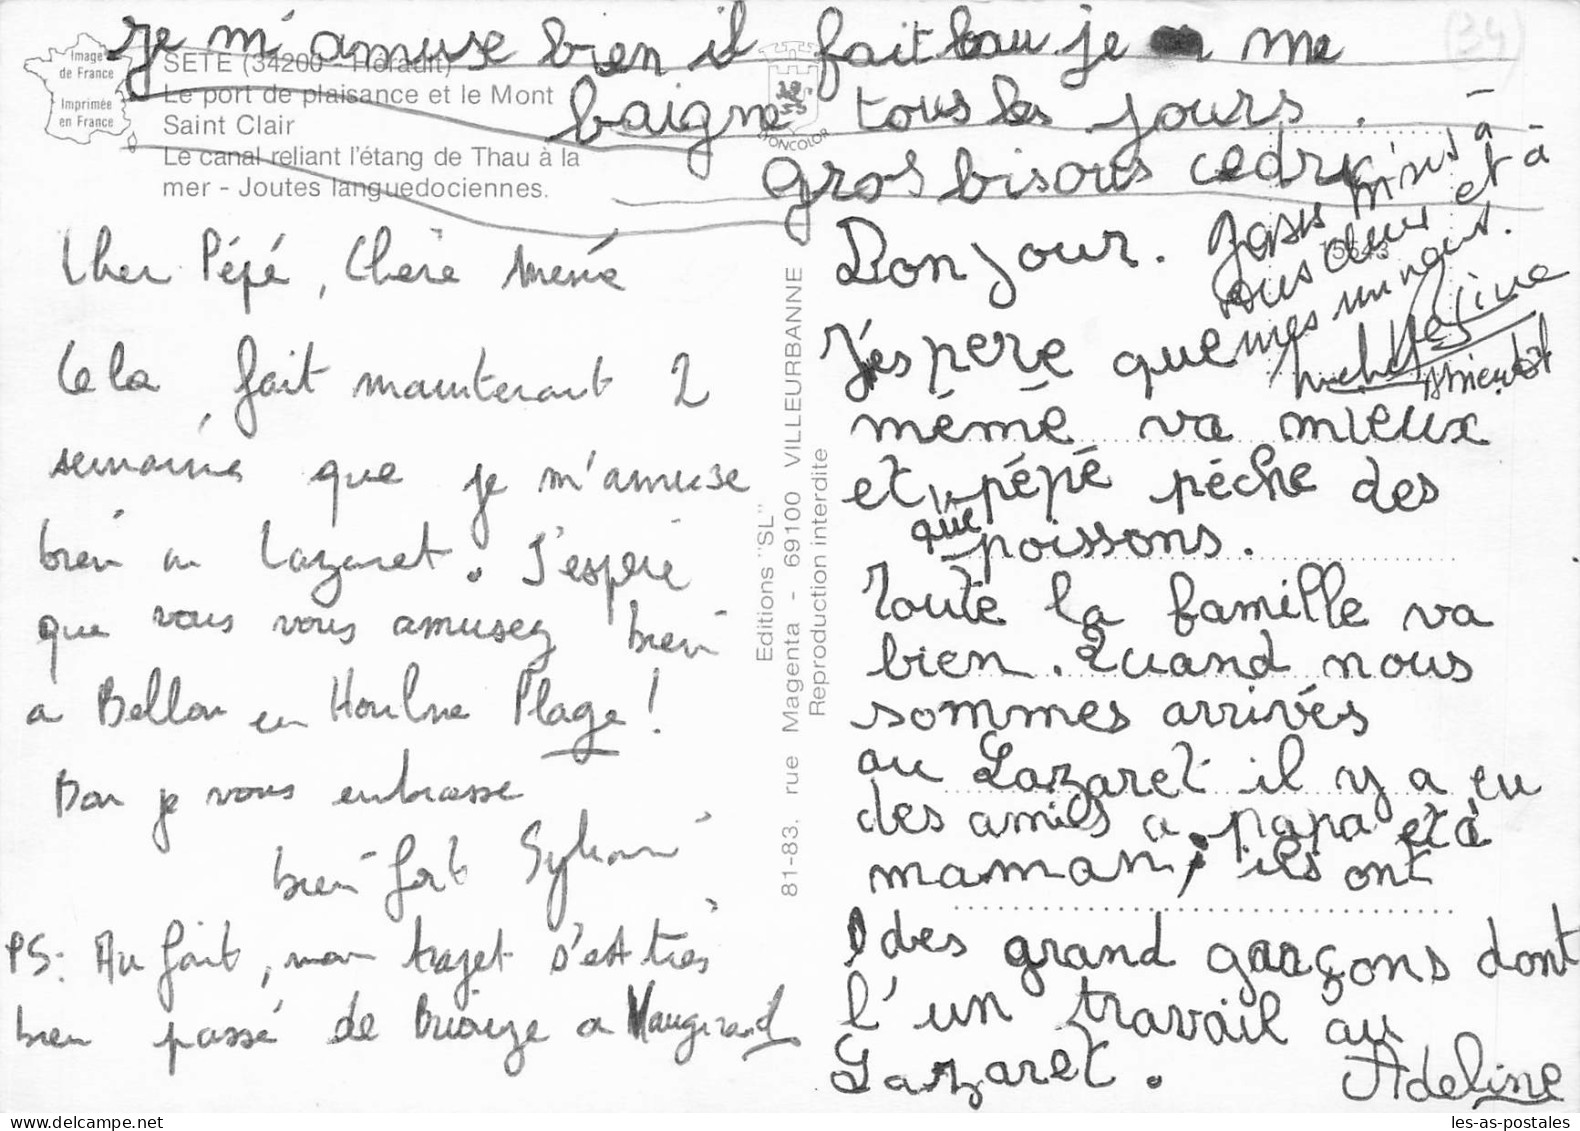 je m'amuse bien il fait bau je me
baigne tous les jours.
gros bisous cedric
(34)
Image
de France
Imprimée
en France
SETE (34200 - Hérault)
Le port de plaisance et le Mont
Saint Clair
Le canal reliant l'étang de Thau à la
mer - Joutes languedociennes.
Cher Pépé, Chère Mémé
Cela fait maintenant 2
semaines que je m'amuse
bien au Lazaret. J'espère
que vous vous amusez bien
a Bellou en Houlme Plage!
Bon je vous embrasse
bien fort Sylvain
PS: Au fait, mon trajet s'est très
bien passé de Briouze a Vaugirard
Editions "SL"
81-83, rue Magenta - 69100 VILLEURBANNE
Reproduction interdite
Bonjour.
J'espere que
mémé va mieux
et que pépé pêche des
poissons.
Toute la famille va
bien. Quand nous
sommes arrivés
au Lazaret il y a eu
des amies a papa et à
maman, ils ont
des grand garçons dont
l'un travail au
Lazaret.
Adeline
bisous à
vous deux et à
mes
Michel
Amientôt